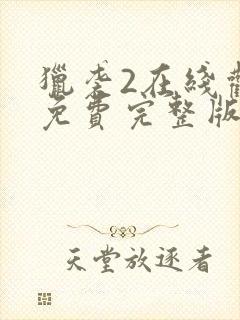 獵李2在綫
免費完整版
天堂放逐者